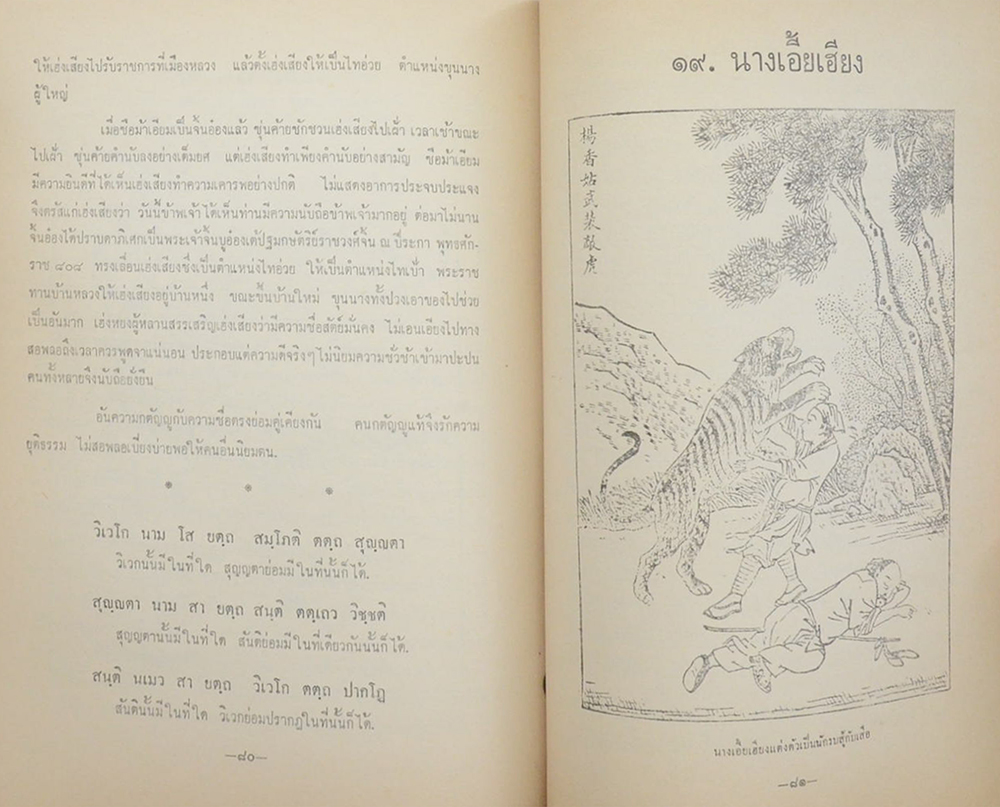 ให้เฮ่งเสียงไปรับราชการที่เมืองหลวง แล้วตั้งเฮ่งเสียงให้เป็นไทอ่วย ตำแหน่งขุนนาง
ผู้ใหญ่
เมื่อซือม้าเอียมเป็นจิ้นอ๋องแล้ว ซุ่นค้ายชักชวนเฮ่งเสียงไปเฝ้า เวลาเข้าขณะ
ไปเฝ้า ซุ่นค้ายคำนับลงอย่างเต็มยศ แต่เฮ่งเสียงทำเพียงคำนับอย่างสามัญ ซือม้าเอียม
มีความยินดีที่ได้เห็นเฮ่งเสียงทำความเคารพอย่างปกติ ไม่แสดงอาการประจบประแจง
จึงตรัสแก่เฮ่งเสียงว่า วันนี้ข้าพเจ้าได้เห็นท่านมีความนับถือข้าพเจ้ามากอยู่ ต่อมาไม่นาน
จิ้นอ๋องได้ปราบดาภิเศกเป็นพระเจ้าจิ้นบูอ๋องเต้ปฐมกษัตริย์ราชวงศ์จิ้น ณ ปีระกา พุทธศัก-
ราช ๘๐๘ ทรงเลื่อนเฮ่งเสียงซึ่งเป็นตำแหน่งไทอ่วย ให้เป็นตำแหน่งไทเป๋า พระราช
ทานบ้านหลวงให้เฮ่งเสียงอยู่บ้านหนึ่ง ขณะขึ้นบ้านใหม่ ขุนนางทั้งปวงเอาของไปช่วย
เป็นอันมาก เฮ่งหยงผู้หลานสรรเสริญเฮ่งเสียงว่ามีความซื่อสัตย์มั่นคง ไม่เอนเอียงไปทาง
สอพลอถึงเวลาควรพูดจาแน่นอน ประกอบแต่ความดีจริงๆ ไม่นิยมความชั่วช้าเข้ามาปะปน
คนทั้งหลายจึงนับถือยั่งยืน
อันความกตัญญูกับความซื่อตรงย่อมคู่เคียงกัน คนกตัญญูแท้จึงรักความ
ยุติธรรม ไม่สอพลอเบี่ยงบ่ายพอให้คนอื่นนิยมตน.
วิเวโก นาม โส ยตฺถ สมฺโภติ ตตฺถ สุญฺญตา
วิเวกนั้นมีในที่ใด สุญญตาย่อมมีในที่นั้นก็ได้.
สุญฺญตา นาม สา ยตฺถ สนฺติ ตตฺเถว วิชฺชติ
สุญญตานั้นมีในที่ใด สันติย่อมมีในที่เดียวกันนั้นก็ได้.
สนฺติ นเมว สา ยตฺถ วิเวโก ตตฺถ ปากโฏ
สันตินั้นมีในที่ใด วิเวกย่อมปรากฏในที่นั้นก็ได้.
—๘๐—
๑๙. นางเอี้ยเฮียง
楊香姑武裝敵虎
นางเอี้ยเฮียงแต่งตัวเป็นนักรบสู้กับเสือ
—๘๑—